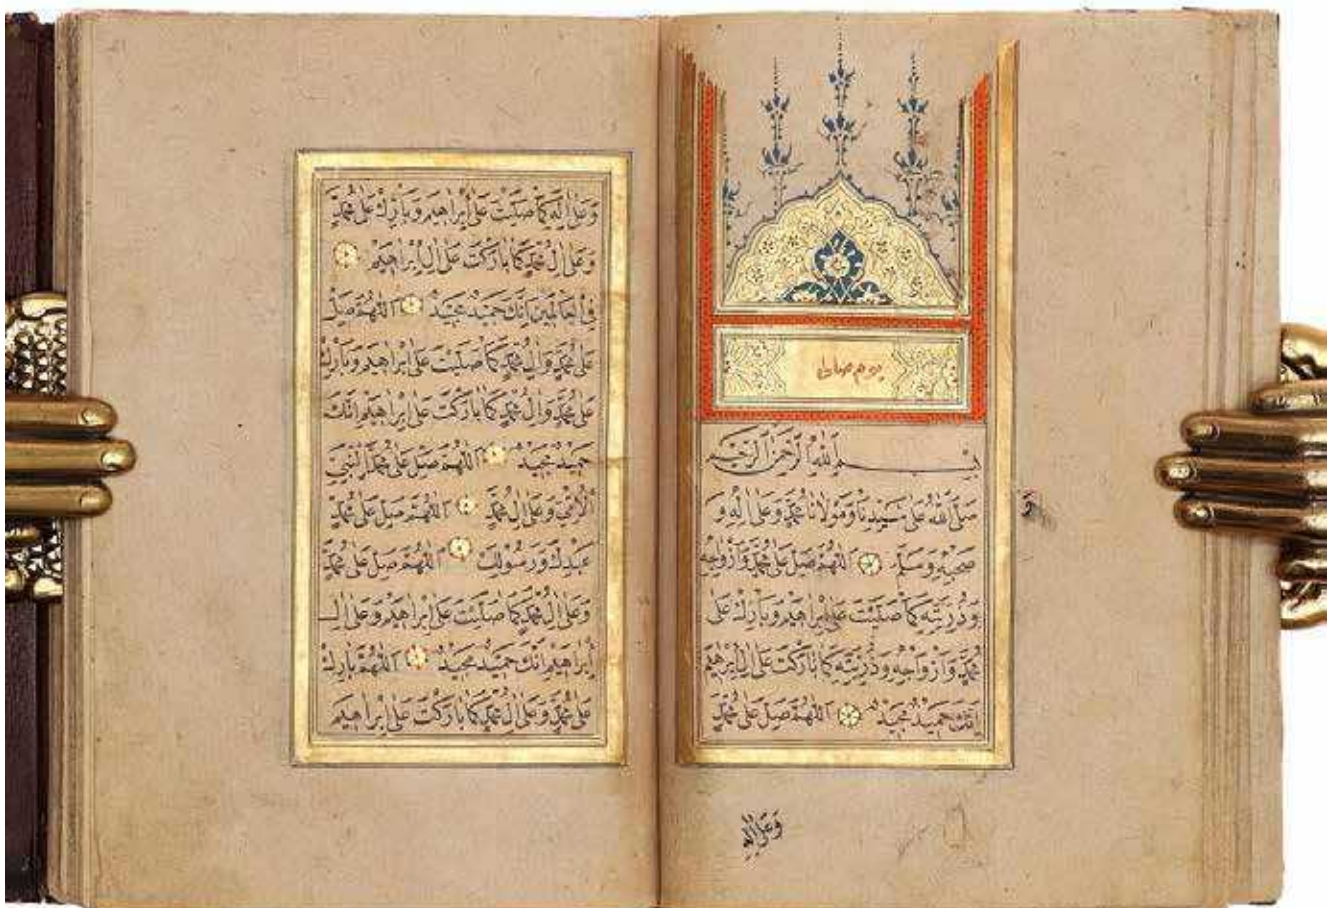 يوم صالى
بسم الله الرحمن الرحيم
صَلَّى اللهُ عَلَى سَيِّدِنَا وَمَوْلَانَا مُحَمَّدٍ وَعَلَى اٰلِهِ وَ
صَحْبِهِ وَسَلَّمَ اَللّٰهُمَّ صَلِّ عَلَى مُحَمَّدٍ وَاَزْوَاجِهِ
وَذُرِّيَّتِهِ كَمَا صَلَّيْتَ عَلَى اِبْرَاهِيمَ وَبَارِكْ عَلَى
مُحَمَّدٍ وَاَزْوَاجِهِ وَذُرِّيَّتِهِ كَمَا بَارَكْتَ عَلَى اٰلِ اِبْرَاهِيمَ
اِنَّكَ حَمِيدٌ مَجِيدٌ اَللّٰهُمَّ صَلِّ عَلَى مُحَمَّدٍ
وَعَلَى اٰلِهِ
وَعَلَى اٰلِهِ كَمَا صَلَّيْتَ عَلَى اِبْرَاهِيمَ وَبَارِكْ عَلَى مُحَمَّدٍ
وَعَلَى اٰلِ مُحَمَّدٍ كَمَا بَارَكْتَ عَلَى اٰلِ اِبْرَاهِيمَ
فِي الْعَالَمِينَ اِنَّكَ حَمِيدٌ مَجِيدٌ اَللّٰهُمَّ صَلِّ
عَلَى مُحَمَّدٍ وَاٰلِ مُحَمَّدٍ كَمَا صَلَّيْتَ عَلَى اِبْرَاهِيمَ وَبَارِكْ
عَلَى مُحَمَّدٍ وَاٰلِ مُحَمَّدٍ كَمَا بَارَكْتَ عَلَى اِبْرَاهِيمَ اِنَّكَ
حَمِيدٌ مَجِيدٌ اَللّٰهُمَّ صَلِّ عَلَى مُحَمَّدٍ النَّبِيِّ
الْاُمِّيِّ وَعَلَى اٰلِ مُحَمَّدٍ اَللّٰهُمَّ صَلِّ عَلَى مُحَمَّدٍ
عَبْدِكَ وَرَسُولِكَ اَللّٰهُمَّ صَلِّ عَلَى مُحَمَّدٍ
وَعَلَى اٰلِ مُحَمَّدٍ كَمَا صَلَّيْتَ عَلَى اِبْرَاهِيمَ وَعَلَى اٰلِ
اِبْرَاهِيمَ اِنَّكَ حَمِيدٌ مَجِيدٌ اَللّٰهُمَّ بَارِكْ
عَلَى مُحَمَّدٍ وَعَلَى اٰلِ مُحَمَّدٍ كَمَا بَارَكْتَ عَلَى اِبْرَاهِيمَ